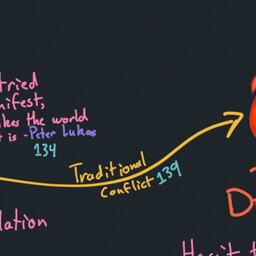 tried
nifest,
kes the world
t is -Peter Lukas
134
Traditional
Conflict 139
lation
D